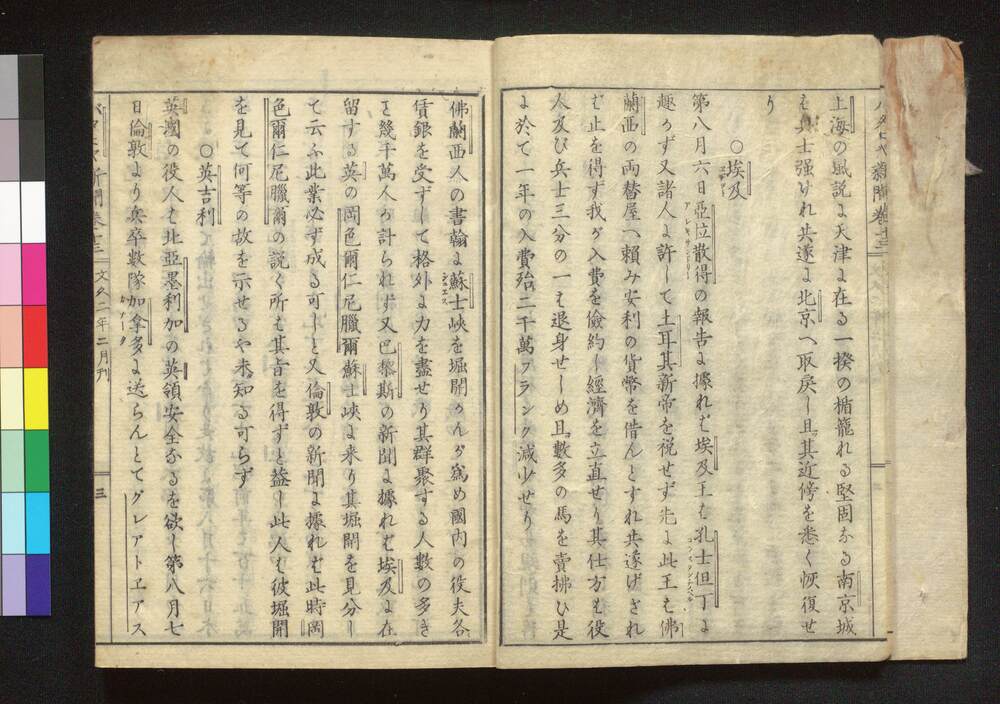 上海の風説に天津に在る一揆の楯籠れる堅固なる南京城
を兵士強けれ共遂に北京へ取戻し且其近傍を悉く恢復せ
り
○埃及
第八月六日亞拉散得の報告に據れば埃及王は孔士但丁に
趣かず又諸人に許して土耳其新帝を祝せず先に此王は佛
蘭西の両替屋へ頼み安利の貨幣を借んとすれ共遂げされ
ば止を得ず我が入費を儉約し經濟を立直せり其仕方は役
太及び兵士三分の一を退身せしめ且數多の馬を賣拂ひ是
に於て一年の入費殆二千萬フランク減少せり
佛蘭西人の書翰に蘇士峽を堀開かんが爲め國内の役夫各
賃銀を受ずして格外に力を盡せり其群聚する人數の多き
を幾千萬人か計られず又巴黎斯の新聞に據れば埃及に在
留する英の岡色爾仁尼臘爾蘇士峽に来り其堀開を見分し
て云ふ此業必ず成る可しと又倫敦の新聞に據れば此時岡
色爾仁尼臘爾の説く所は其旨を得ずと蓋し此人は彼堀開
を見て何等の故を示せるや未知る可らず
○英吉利
英國の役人は北亞墨利加の英領安全なるを欲し第八月七
日倫敦より兵卒數隊加拿多に送らんとてグレアトヱアス
バタヒヤ新聞卷十三 文久二年二月刊 三